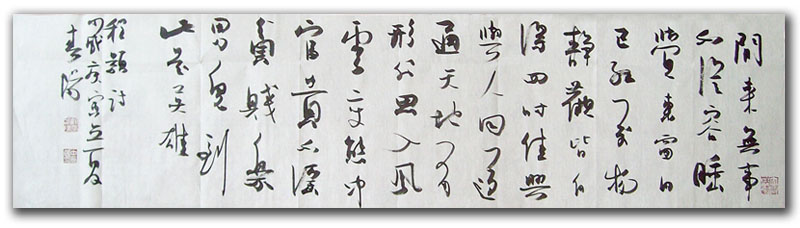 閒来無事
不從容睡
覺東窗日
已红万物
静觀皆自
得四时佳興
與人同道
通天地有
形外思入風
雲变態中
富貴不淫
貧賤樂
男兒到
此是英雄
程颢詩
庚寅立夏